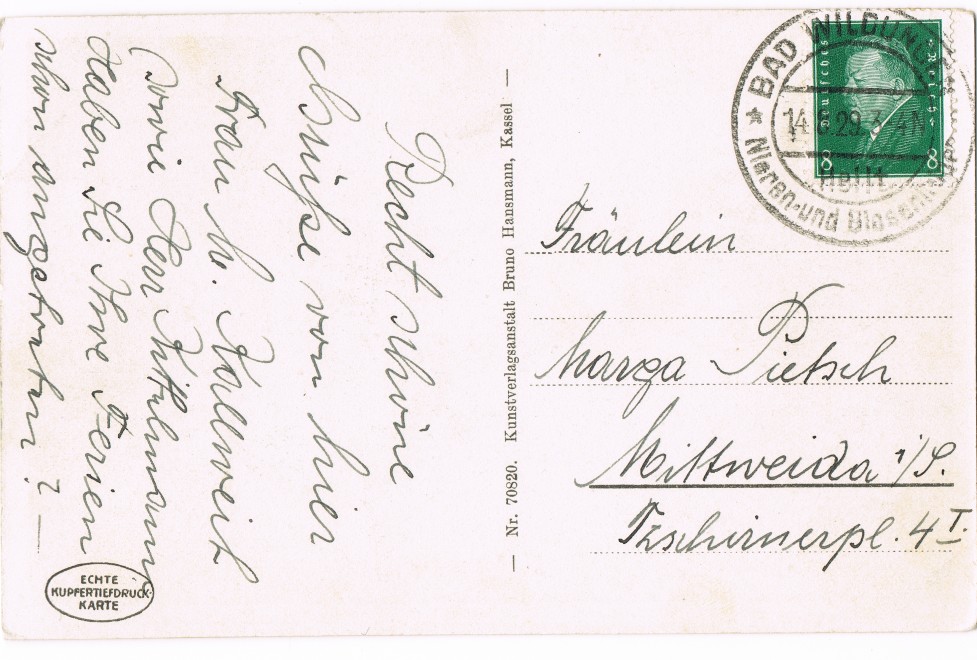 Recht schöne
Grüße von hier
Frau M. Kallweit
sowie Herr
Haben Sie Ihre Ferien
schon angetreten? –
ECHTE
KUPFERTIEFDRUCK-
KARTE
— Nr. 70820. Kunstverlagsanstalt Bruno Hansmann, Kassel —
BAD WILDUNGEN
14. 29.
heilt
Nieren- und Blasen
Deutsches Reich
8 8
Fräulein
Marga Pietsch
Mittweida i/S.
Tzschirnerpl. 4 I.